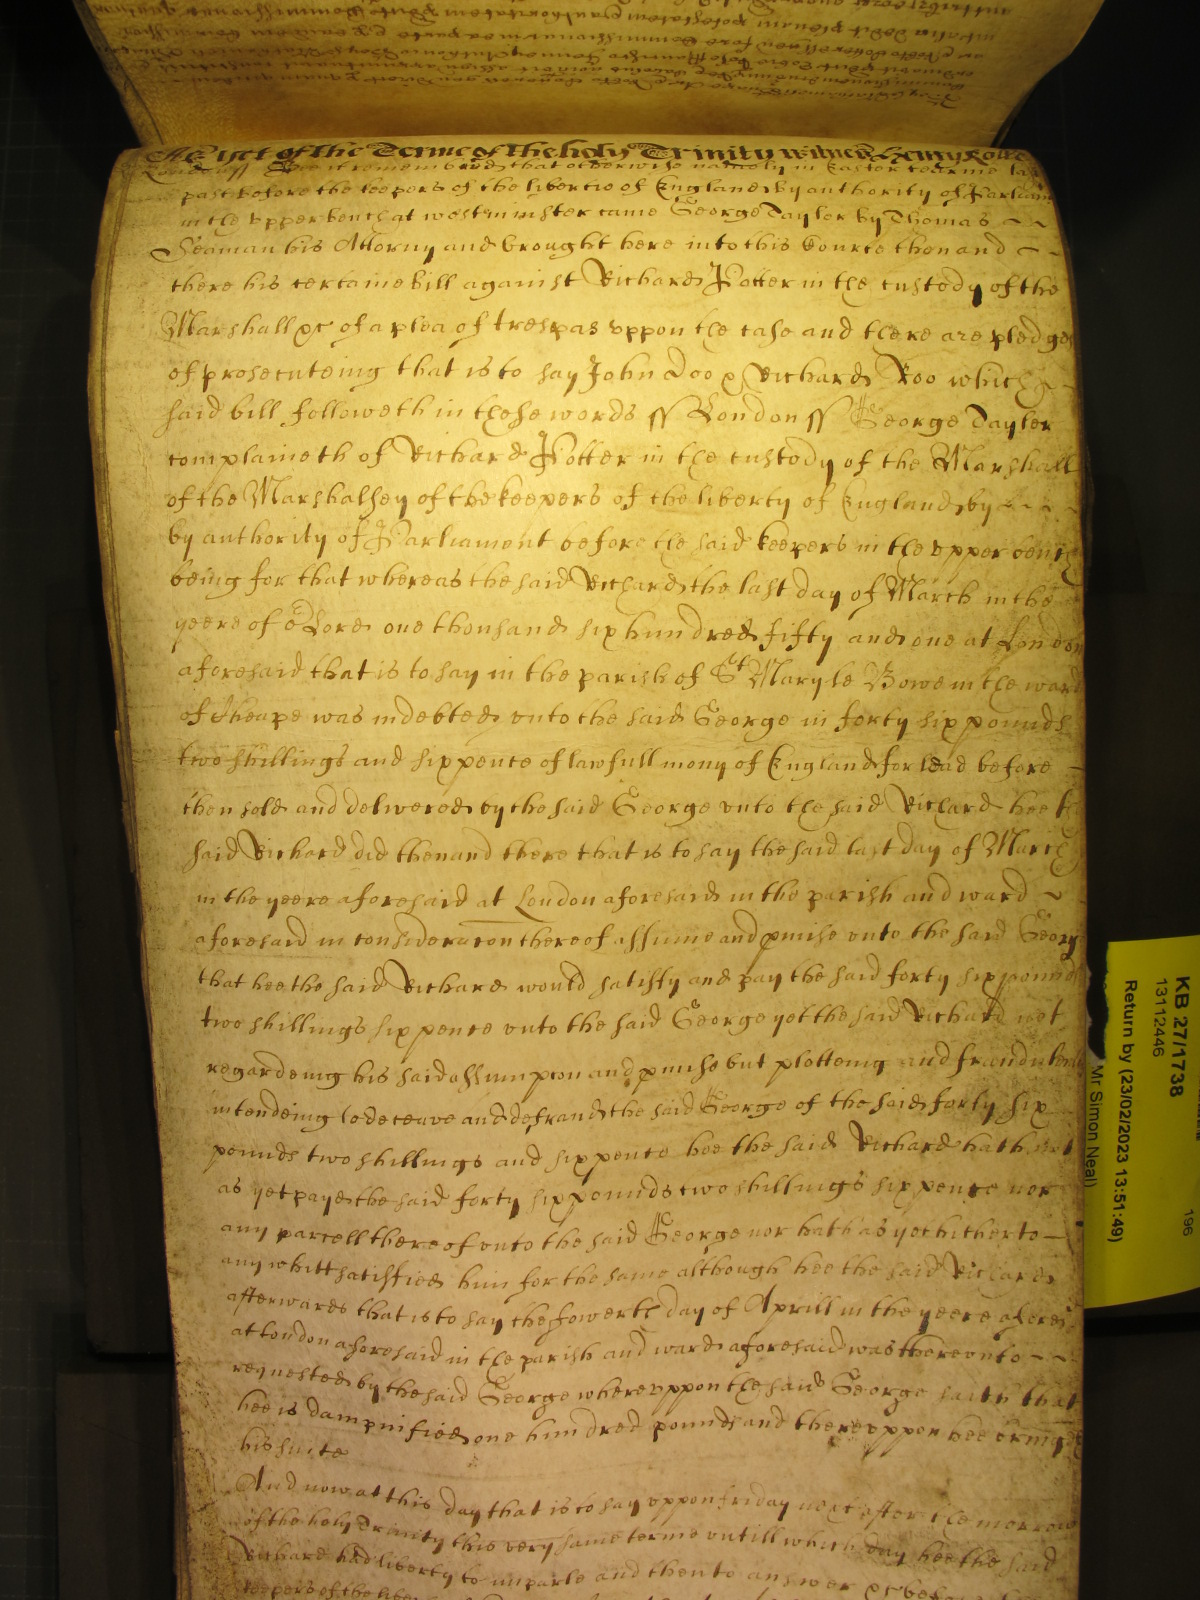 As yet of the Terme of the holy Trinity witnes Henry Rolle
London ss Bee it remembred that otherwise namely in Easter tearme last
past before the keepers of the libertie of England by authority of Parliam
in the upper bench at westminster came George Tayler by Thomas
Seaman his Attorny and brought here into this Courte then and
there his certaine bill against Richard Potter in the custody of the
Marshall &c of a plea of trespas uppon the case and there are pledges
of prosecuteing that is to say John Doo & Richard Roo which
said bill followeth in these words ss London ss George Tayler
complaineth of Richard Potter in the custody of the Marshall
of the Marshalsey of the keepers of the liberty of England by
by authority of Parliament before the said keepers in the upper bench
being for that whereas the said Richard the last day of March in the
yeere of or Lord one thousand six hundred fifty and one at London
aforesaid that is to say in the parish of St Mary le Bowe in the ward
of Cheape was indebted unto the said George in forty six pounds
two shillings and six pence of lawfull mony of England for lead before
then sold and delivered by the said George unto the said Richard hee the
said Richard did then and there that is to say the said last day of March
in the yeere aforesaid at London aforesaid in the parish and ward
aforesaid in consideracon thereof assume and pmise unto the said George
that hee the said Richard would satisfy and pay the said forty six pounds
two shillings six pence unto the said George yet the said Richard not
regardeing his said assumpcon and pmise but plotteing and fraudulently
intendeing to deceave and defraud the said George of the said forty six
pounds two shillings and six pence hee the said Richard hath not
as yet payed the said forty six pounds two shillings six pence nor
any parcell thereof unto the said George nor hath as yet hitherto
any whitt satisfied him for the same although hee the said Richard
afterwards that is to say the fowerth day of Aprill in the yeere aforesaid
at London aforesaid in the parish and ward aforesaid was thereunto
requested by the said George whereuppon the said George saith that
hee is dampnified one hundred pounds and thereuppon hee bringeth
his suite
And now at this day that is to say uppon friday next after the morrow
of the holy Trinity this very same terme untill which day hee the said
Richard had liberty to imparle and then to answer &c before
keepers of the
KB 27/1738
13112446
Return by (23/02/2023 13:51:49)
Mr Simon Neal)
196